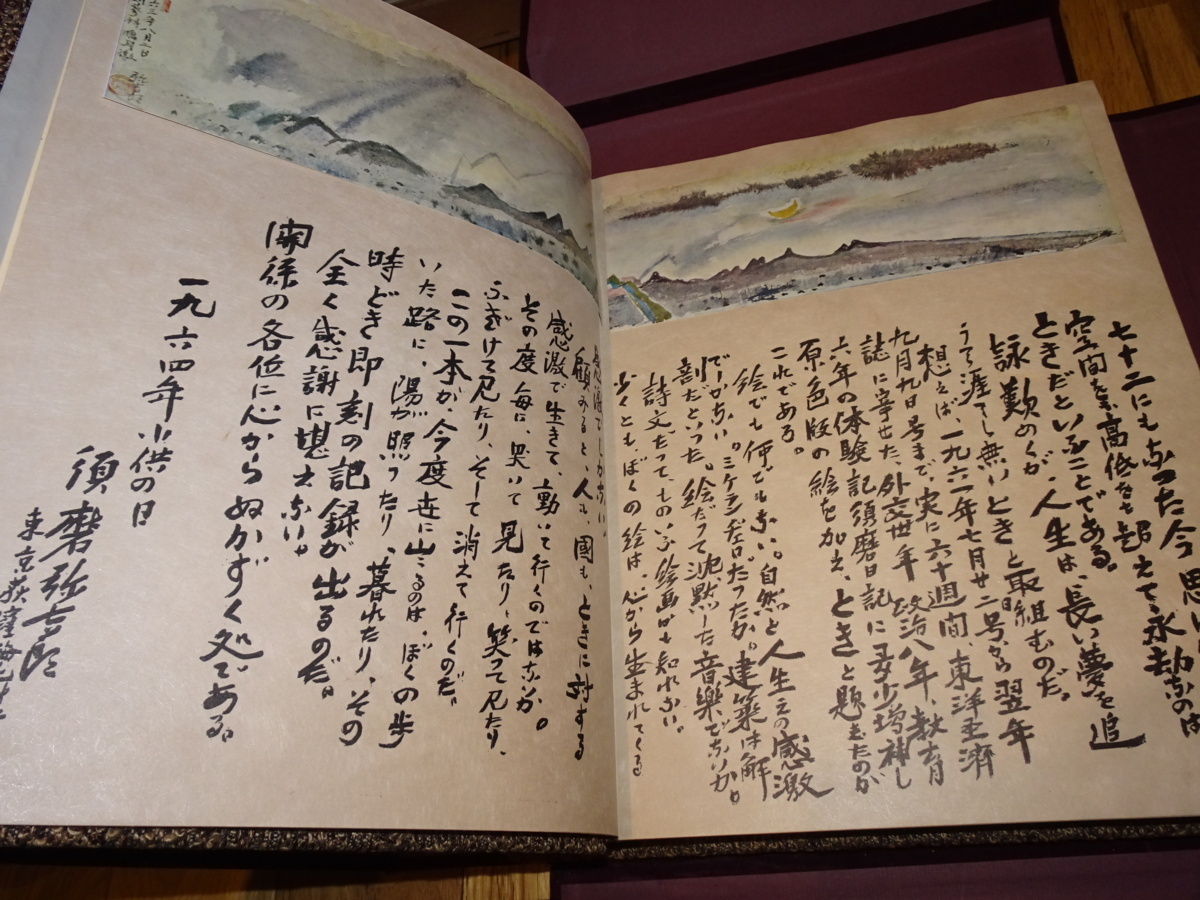 七十二にもなった今、思い
空間を、高低をも超えて、永劫なのは
ときだといふことである。
詠歎めくが、人生は、長い夢を追
うて涯てし無いときと取組むのだ。
想えば、一九六一年七月廿二日号から翌年
九月九日号まで、実に六十週間、東洋経済
誌に寄せた、外交卅年、政治八年、教育
六年の体験記須磨日記に多少増補し
原色版の絵を加え、ときと題したのが
これである。
絵でも何でもない。自然と人生えの感激
でしかない。ミケランヂェロだったか。建築は解
剖だといった。絵だって沈黙した音樂でないか。
詩文だって、ものいふ絵画かも知れない。
少くとも、ぼくの絵は、心から生まれてくる
でしかない。
顧みると、人も、國も、ときに対する
感激で生きて、動いて行くのではないか。
その度毎に、哭いて見たり、笑って見たり、
ふざけて見たり、そして消えて行くのだ。
この一本が、今度世に出るのは、ぼくの歩
いた路に、陽が照ったり、暮れたり、その
時どき即刻の記録が出るのだ。
全く感謝に堪えない。
関係の各位に心からぬかずく次第である。
一九六四年小供の日
須磨弥吉郎
東京荻窪